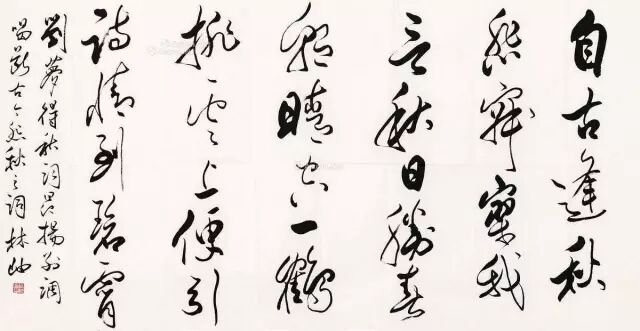 自古逢秋
悲寂寥我
言秋日勝春
朝晴空一鶴
排雲上便引
詩情到碧霄
劉夢得秋詞揚調
古今悲秋之詞 林岫